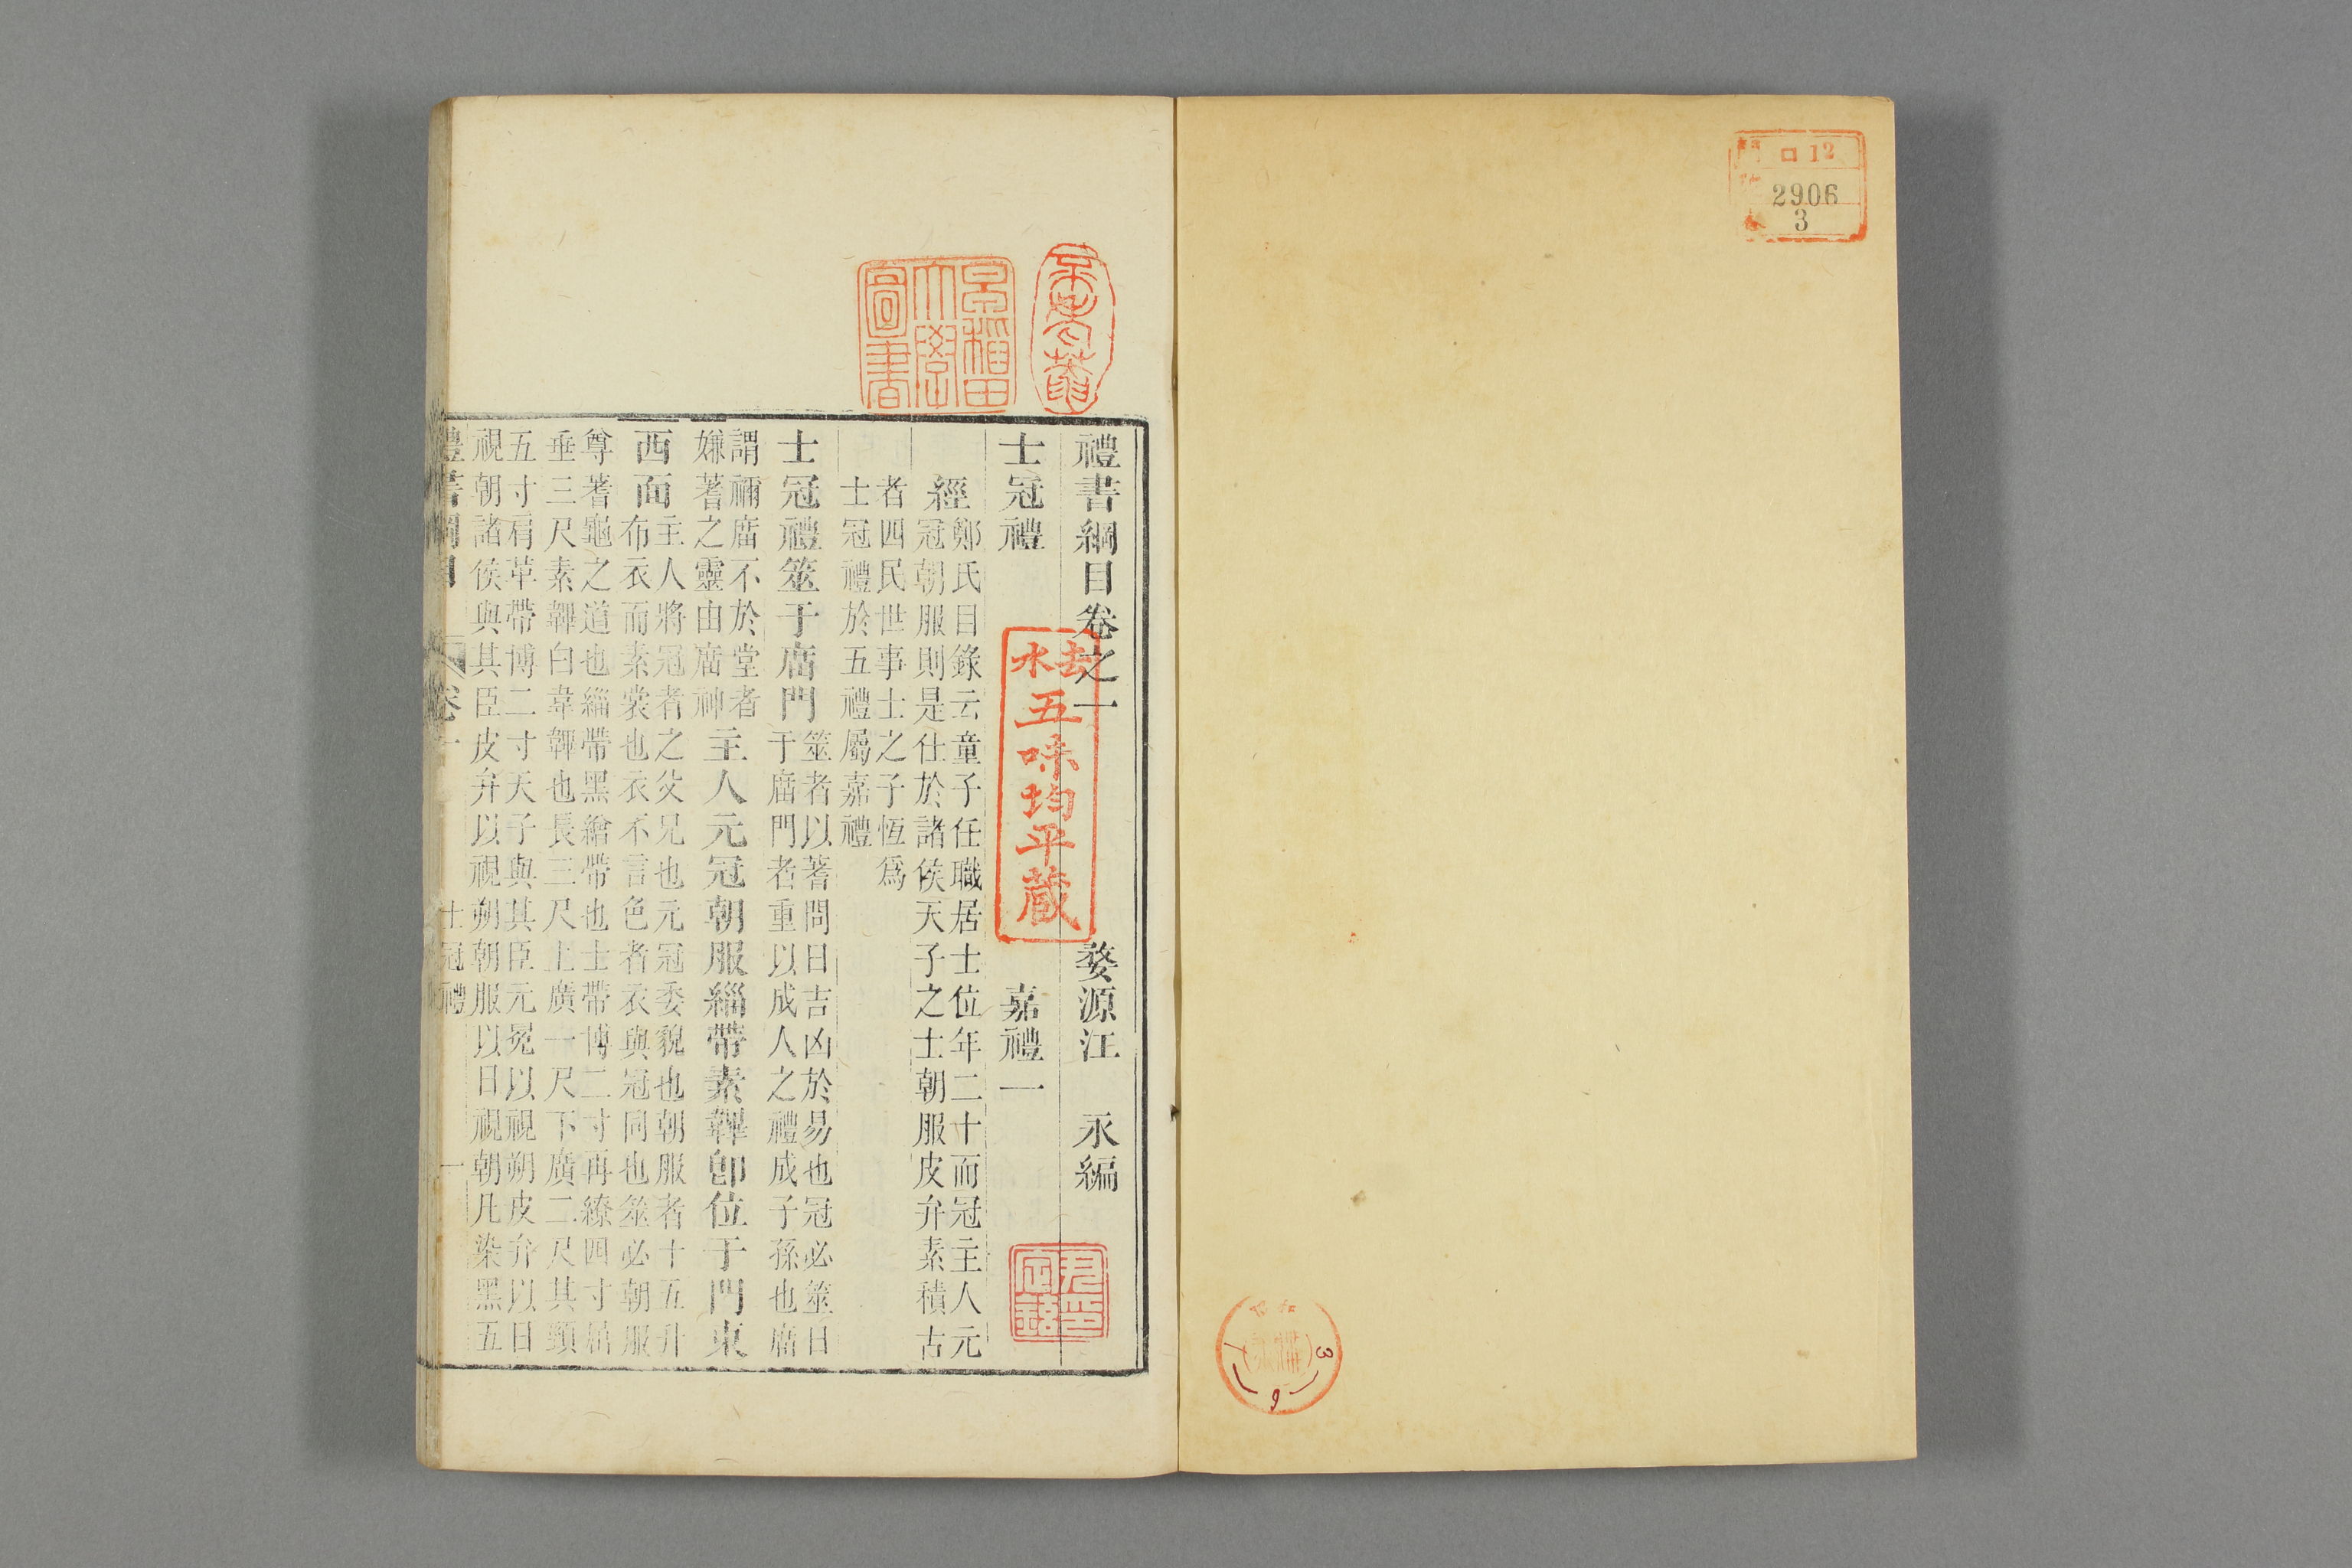 ロ 12
2906
3
禮書綱目卷之一 婺源江 永編
士冠禮 嘉禮一
經
鄭氏目錄云童子任職居士位年二十而冠主人元
冠朝服則是仕於諸侯天子之士朝服皮弁素積古
者四民世事士之子恆爲
士冠禮於五禮屬嘉禮
士冠禮筮于庿門
筮者以蓍問日吉凶於易也冠必筮日
于庿門者重以成人之禮成子孫也庿
謂禰庿不於堂者
嫌蓍之靈由庿神
主人元冠朝服緇帶素韠卽位于門東
西面
主人將冠者之父兄也元冠委貌也朝服者十五升
布衣而素裳也衣不言色者衣與冠同也筮必朝服
尊蓍龜之道也緇帶黑繒帶也士帶博二寸再繚四寸屈
垂三尺素韠白韋韠也長三尺上廣一尺下廣二尺其頸
五寸肩革帶博二寸天子與其臣元冕以視朔皮弁以日
視朝諸侯與其臣皮弁以視朔朝服以日視朝凡染黑五
禮書綱目 卷一 士冠禮 一
早稻田
大學
圖書
去水
五味均平蔵
3
6